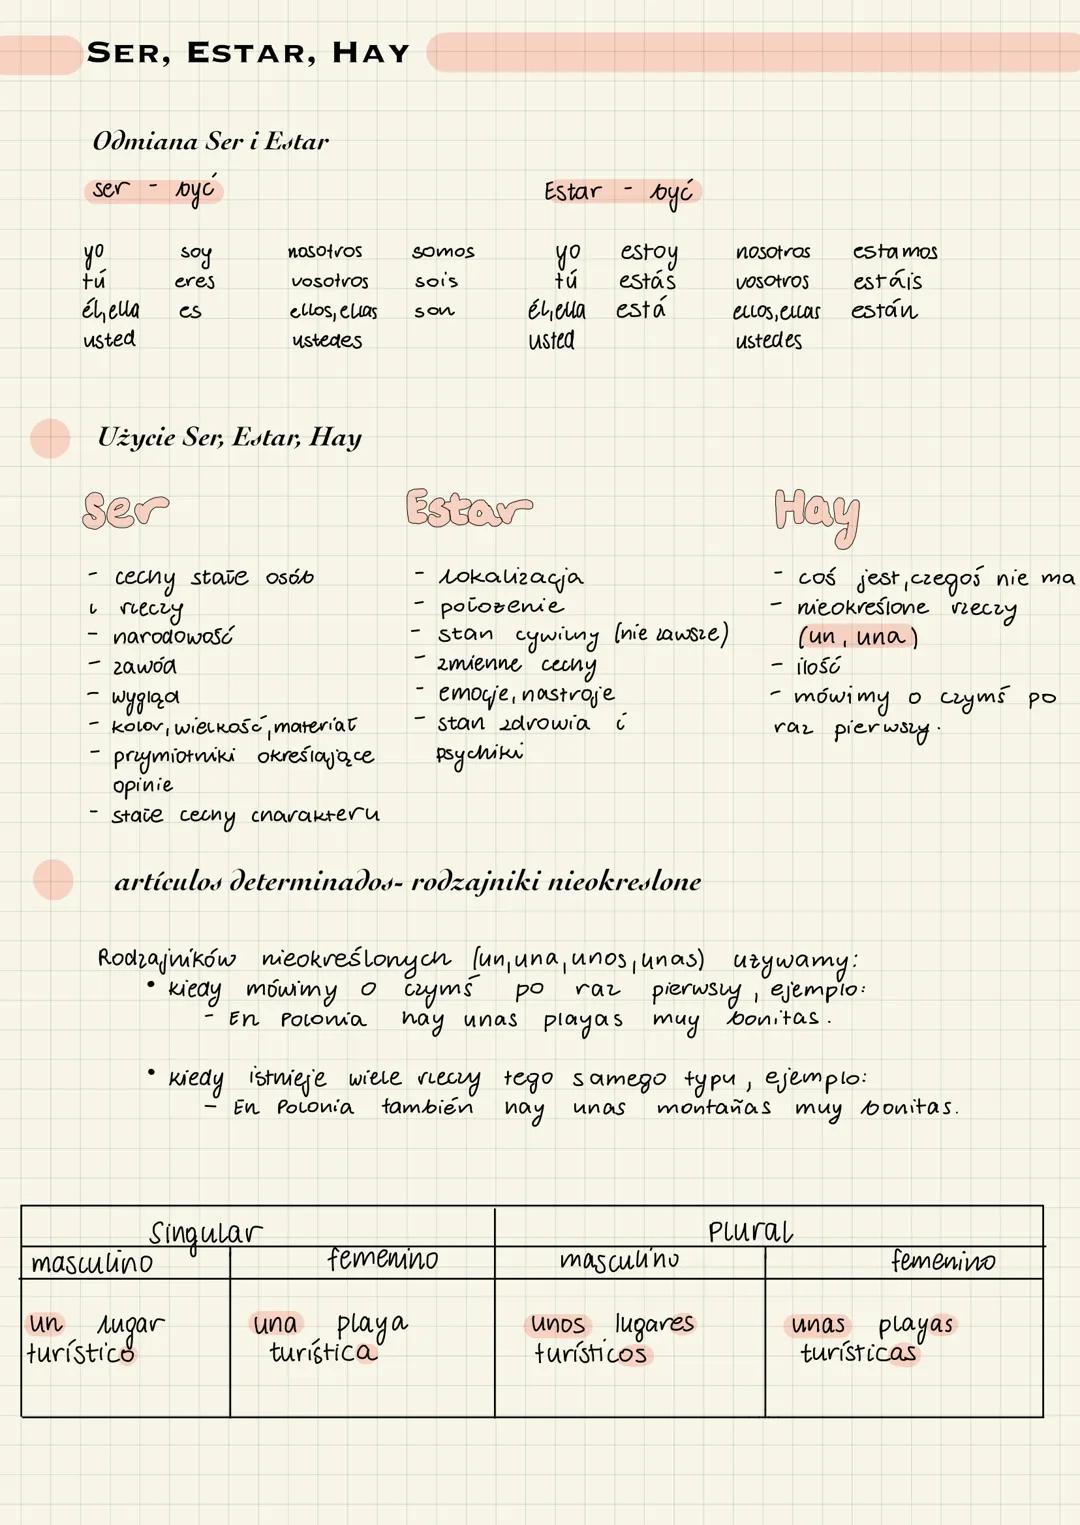 SER, ESTAR, HAY
Odmiana Ser i Estar
ser - być
Estar - być
yo soy nosotros somos
tú eres vosotros sois
él,ella es ellos,ellas son
usted ustedes
yo estoy nosotros estamos
tú estás vosotros estáis
él,ella está ellos,ellas están
usted ustedes
Użycie Ser, Estar, Hay
Ser
- cechy stałe osób
i rzeczy
- narodowość
- zawód
- wygląd
- kolor, wielkość, materiał
- przymiotniki określające
opinie
- stałe cechy charakteru
Estar
- lokalizacja
- położenie
- stan cywilny (nie zawsze)
- zmienne cechy
- emocje, nastroje
- stan zdrowia i
psychiki
Hay
- coś jest, czegoś nie ma
- nieokreślone rzeczy
(un, una)
- ilość
- mówimy o czymś po
raz pierwszy.
artículos determinados- rodzajniki nieokreslone
Rodzajników nieokreślonych (un, una, unos, unas) używamy:
• kiedy mówimy o czymś po raz pierwszy, ejemplo:
- En Polonia hay unas playas muy bonitas.
• kiedy istnieje wiele rzeczy tego samego typu, ejemplo:
- En Polonia también hay unas montañas muy bonitas.
Singular Plural
masculino femenino masculino femenino
un lugar una playa unos lugares unas playas
turístico turística turísticos turísticas